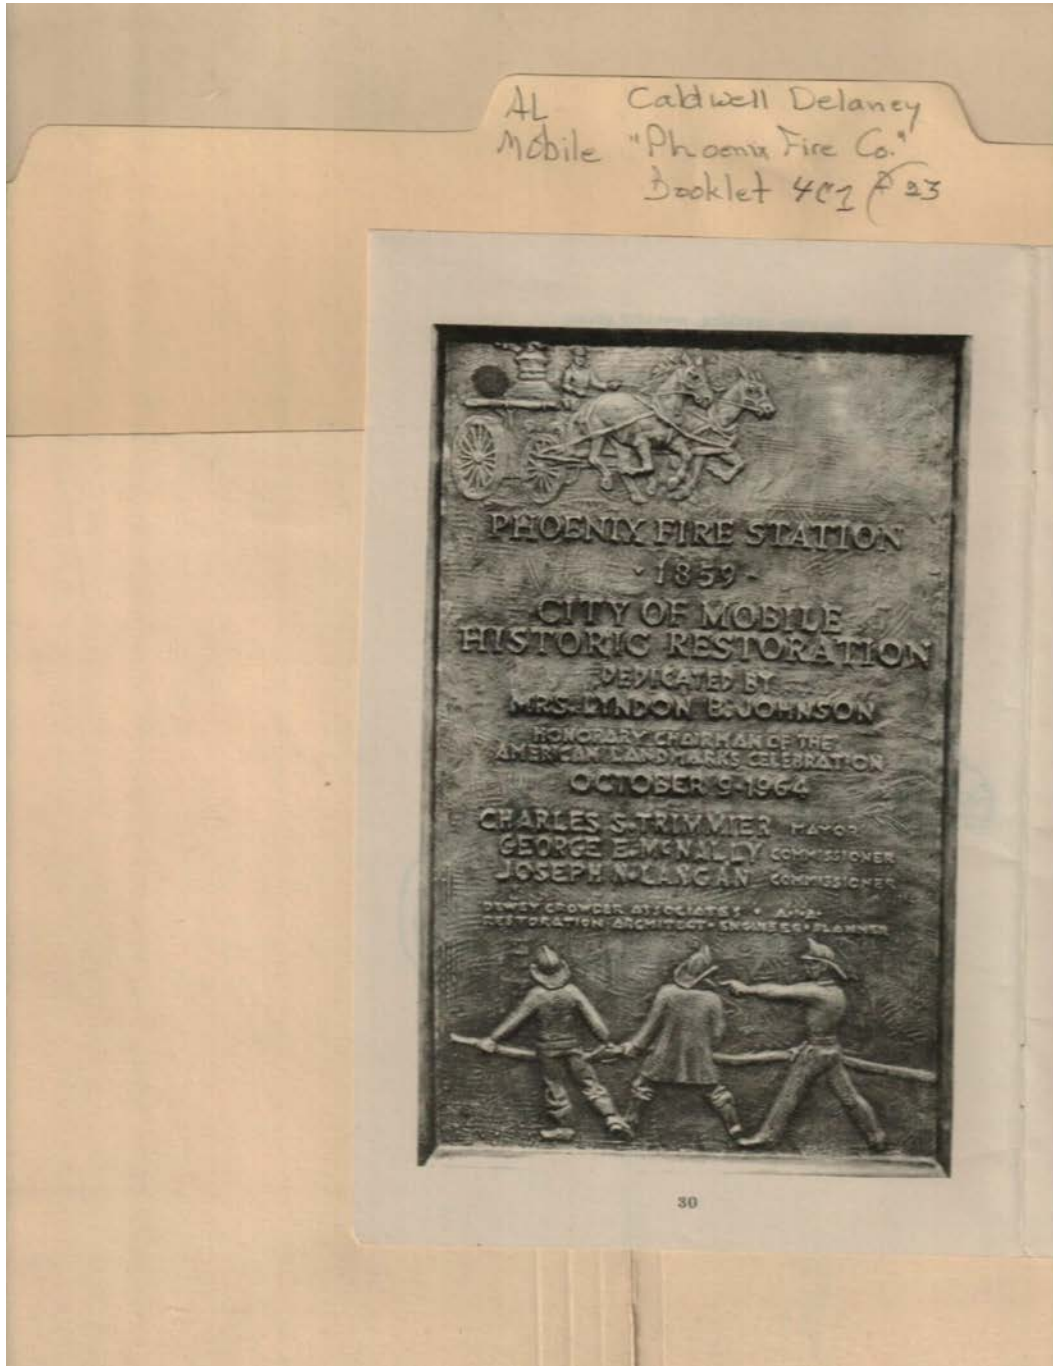 AL Caldwell Delaney
Mobile "Phoenix Fire Co."
Booklet 23
PHOENIX FIRE STATION
· 1859 ·
CITY OF MOBILE
HISTORIC RESTORATION
DEDICATED BY
MRS. LYNDON B. JOHNSON
HONORARY CHAIRMAN OF THE
AMERICAN LANDMARKS CELEBRATION
OCTOBER 9·1964
CHARLES S·TRIMMIER MAYOR
GEORGE E·McNALLY COMMISSIONER
JOSEPH N·LANGAN COMMISSIONER
ASSOCIATES · A·I·A·
RESTORATION ARCHITECT·ENGINEER·PLANNER
30